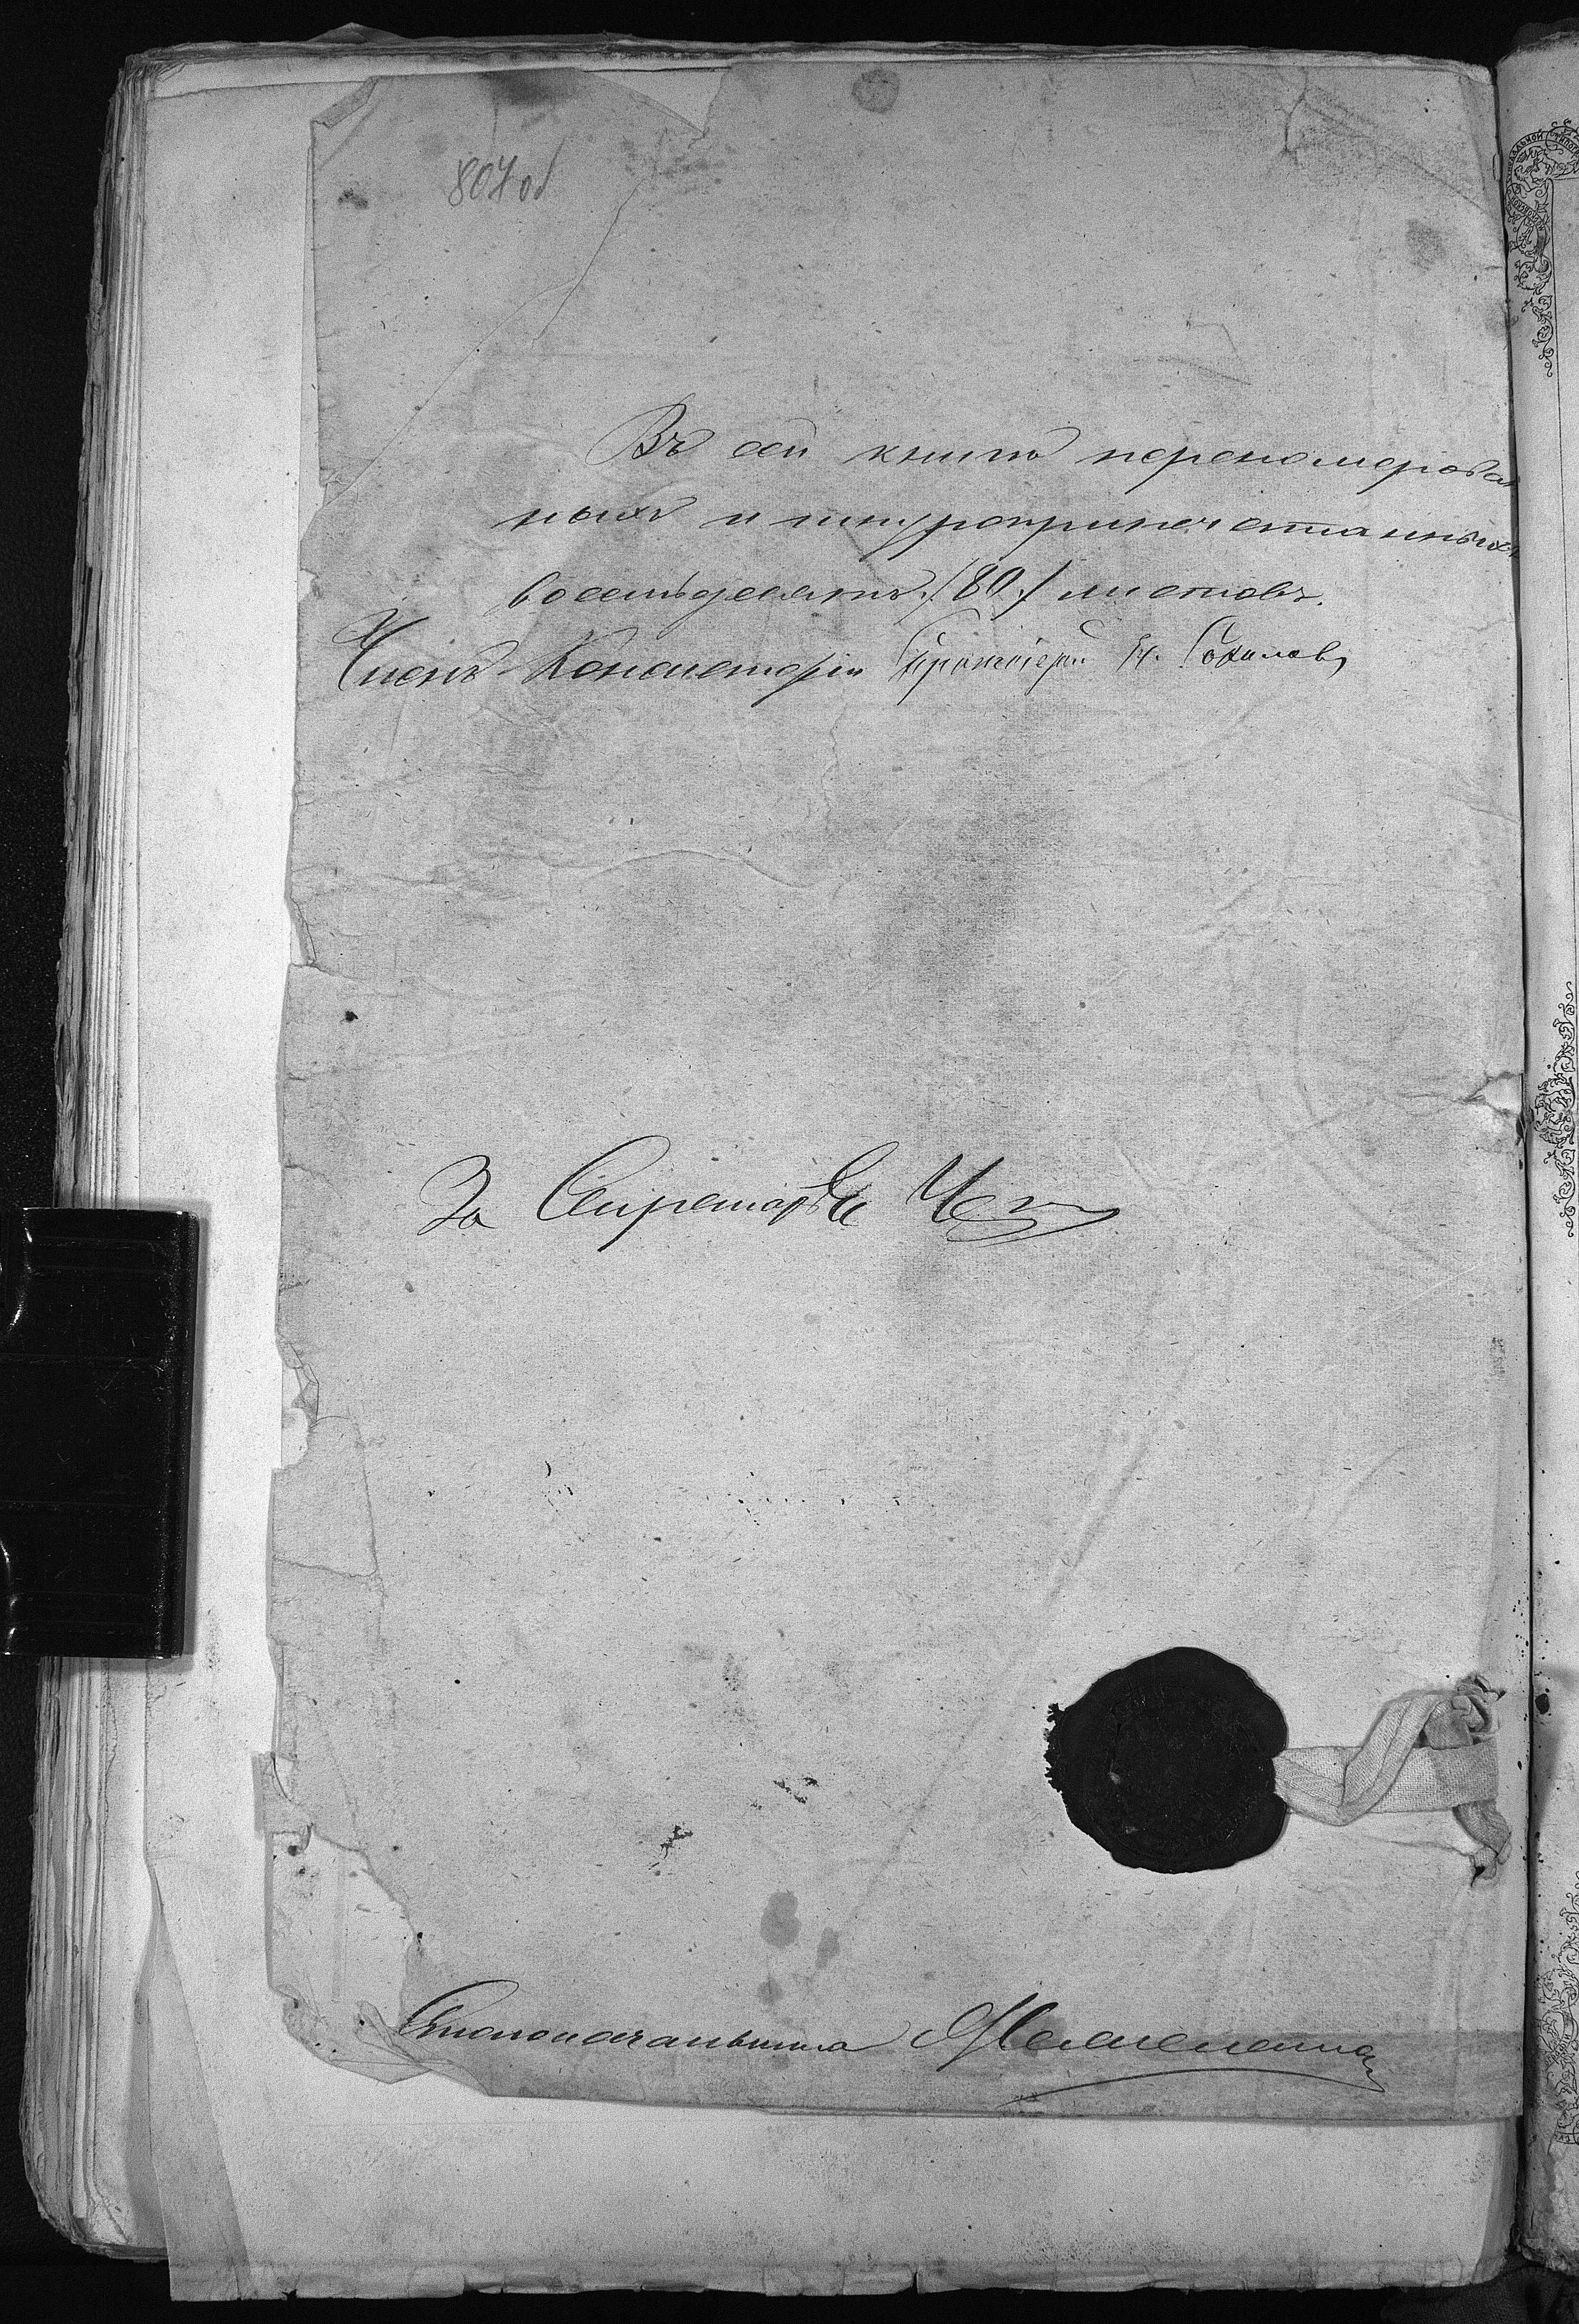 807 об
Въ сей книгѣ перенумерован
ныхъ и шнуроприпечатанныхъ
восемьдесятъ /80/ листовъ.
Членъ Консисторіи Протоіерей Соколовъ
За Секретаря
Столоначальника